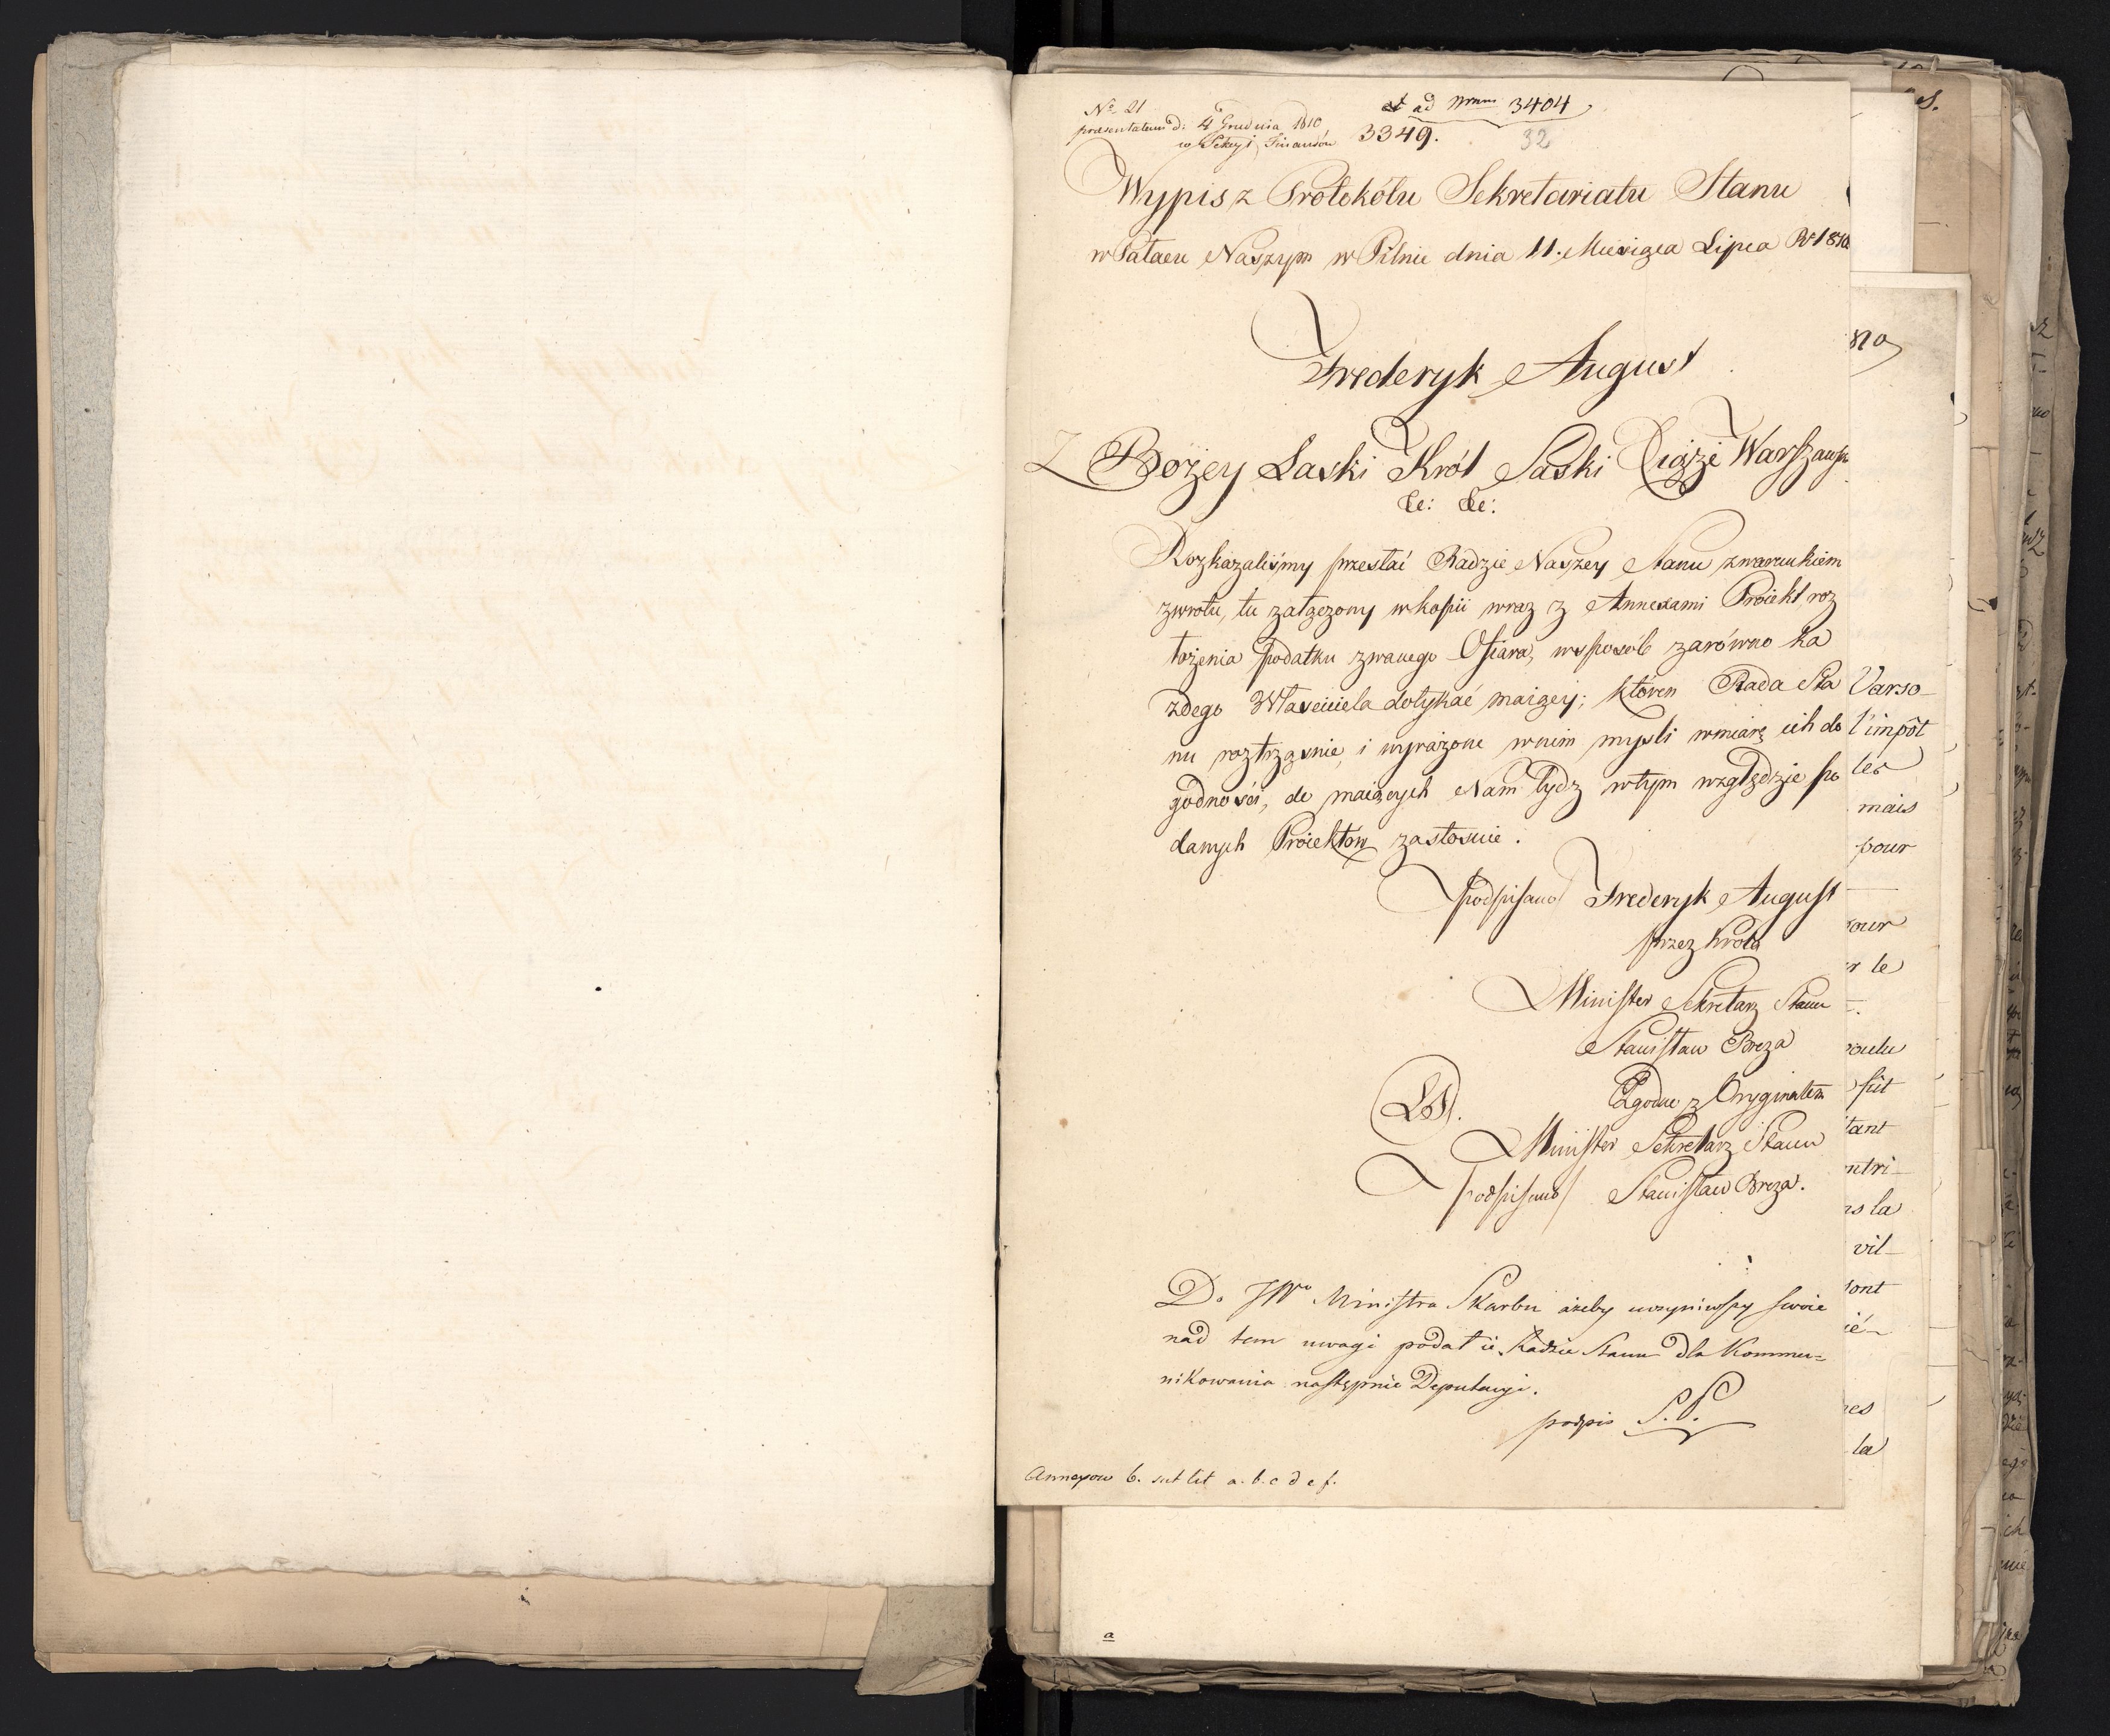 No. 21
praesentatum d: 4 Grudnia 1810
w Sekcyi Finansów
ad Nrum 3404
3349.
32
Wypis z Protokółu Sekretariatu Stanu
w Pałacu Naszym w Pilnic dnia 11. Miesiąca Lipca Rr 1810
Frederyk August
Z Bożey Łaski Król Saski Xiąże Warszawsk
&c: &c:
Rozkazaliśmy przesłać Radzie Naszey Stanu z warunkiem
zwrotu, tu załączony w kopii wraz z Annexami Proiekt roz
łożenia podatku zwanego Ofiara, w sposób zarówno ka
żdego Właściciela dotykać maiącey; któren Rada Sta
nu roztrząśnie, i wyrażone w nim myśli w miarę ich do
godności, do maiących Nam bydź w tym względzie po
danych Proiektów zastosuie.
podpisano Frederyk August
przez Króla
Minister Sekretarz Stanu
Stanisław Breza
LS.
Zgodno z Oryginałem
Minister Sekretarz Stanu
podpisano/ Stanisław Breza.
Do JWo Ministra Skarbu ażeby uczyniwszy swoie
nad tem uwagi podał ie Radzie Stanu dla Kommu=
nikowania następnie Deputacyi.
podpis S. P.
Annexow 6. sub lit a. b. c d e f.
a
820
Varso-
l'impôt
les
mais
pour
our
r le
oulu
fut
tant
ntri-
ns la
vil-
sont
ié-
res
la